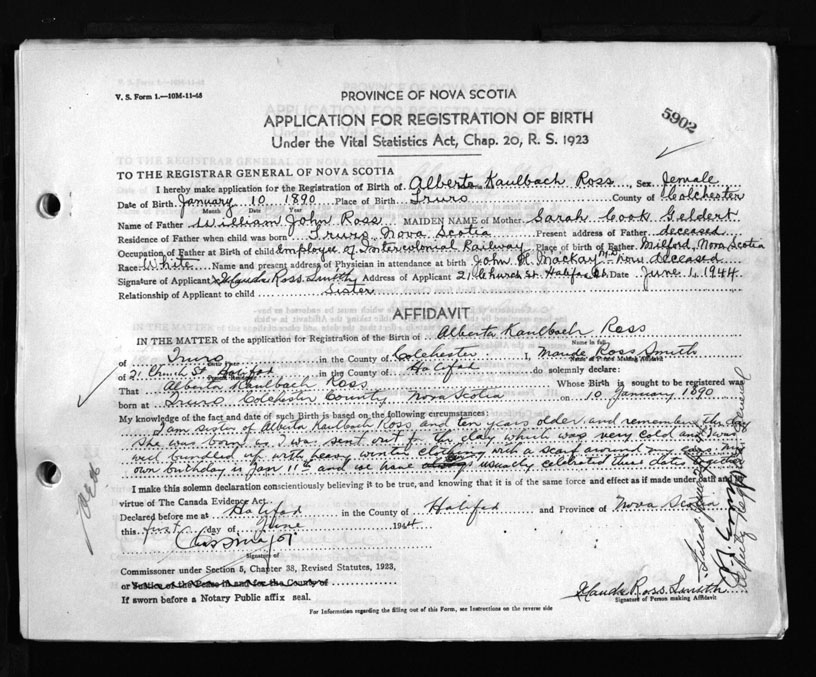 V. S. Form 1.—10M-11-43
PROVINCE OF NOVA SCOTIA
5902
APPLICATION FOR REGISTRATION OF BIRTH
Under the Vital Statistics Act, Chap. 20, R. S. 1923
TO THE REGISTRAR GENERAL OF NOVA SCOTIA
I hereby make application for the Registration of Birth of Alberta Kaulbach Ross, Sex female
Date of Birth January 10 1890 Place of Birth Truro County of Colchester
Month Date Year
Name of Father William John Ross MAIDEN NAME of Mother Sarah Cook Geldert
Residence of Father when child was born Truro Nova Scotia Present address of Father deceased
Occupation of Father at Birth of child Employee of Intercolonial Railway Place of birth of Father Milford, Nova Scotia
Race White Name and present address of Physician in attendance at birth John H. Mackay M.D. - now deceased
Signature of Applicant Maude Ross Smith Address of Applicant 21 Church St. Halifax Date June 1, 1944
Relationship of Applicant to child Sister
AFFIDAVIT
IN THE MATTER of the application for Registration of the Birth of Alberta Kaulbach Ross
Name in full
of Truro in the County of Colchester I, Maude Ross Smith
Name of Person Making Affidavit
of 21 Church St. Halifax in the County of Halifax do solemnly declare:
That Alberta Kaulbach Ross Whose Birth is sought to be registered was
born at Truro, Colchester County, Nova Scotia on 10 January 1890
My knowledge of the fact and date of such Birth is based on the following circumstances:
I am sister of Alberta Kaulbach Ross and ten years older and remember the day
she was born as I was sent out for the day which was very cold and I was
well bundled up with heavy winter clothing with a scarf around my My
own birthday is Jan 11th and we have usually celebrated these dates together
I make this solemn declaration conscientiously believing it to be true, and knowing that it is of the same force and effect as if made under oath and by
virtue of The Canada Evidence Act.
Declared before me at Halifax in the County of Halifax and Province of Nova Scotia
this first day of June 1944
Signature of
Commissioner under Section 5, Chapter 38, Revised Statutes, 1923,
or Justice of the Peace in and for the County of
If sworn before a Notary Public affix seal.
Maude Ross Smith
Signature of Person making Affidavit
For information regarding the filling out of this Form, see Instructions on the reverse side
Deputy Registrar General